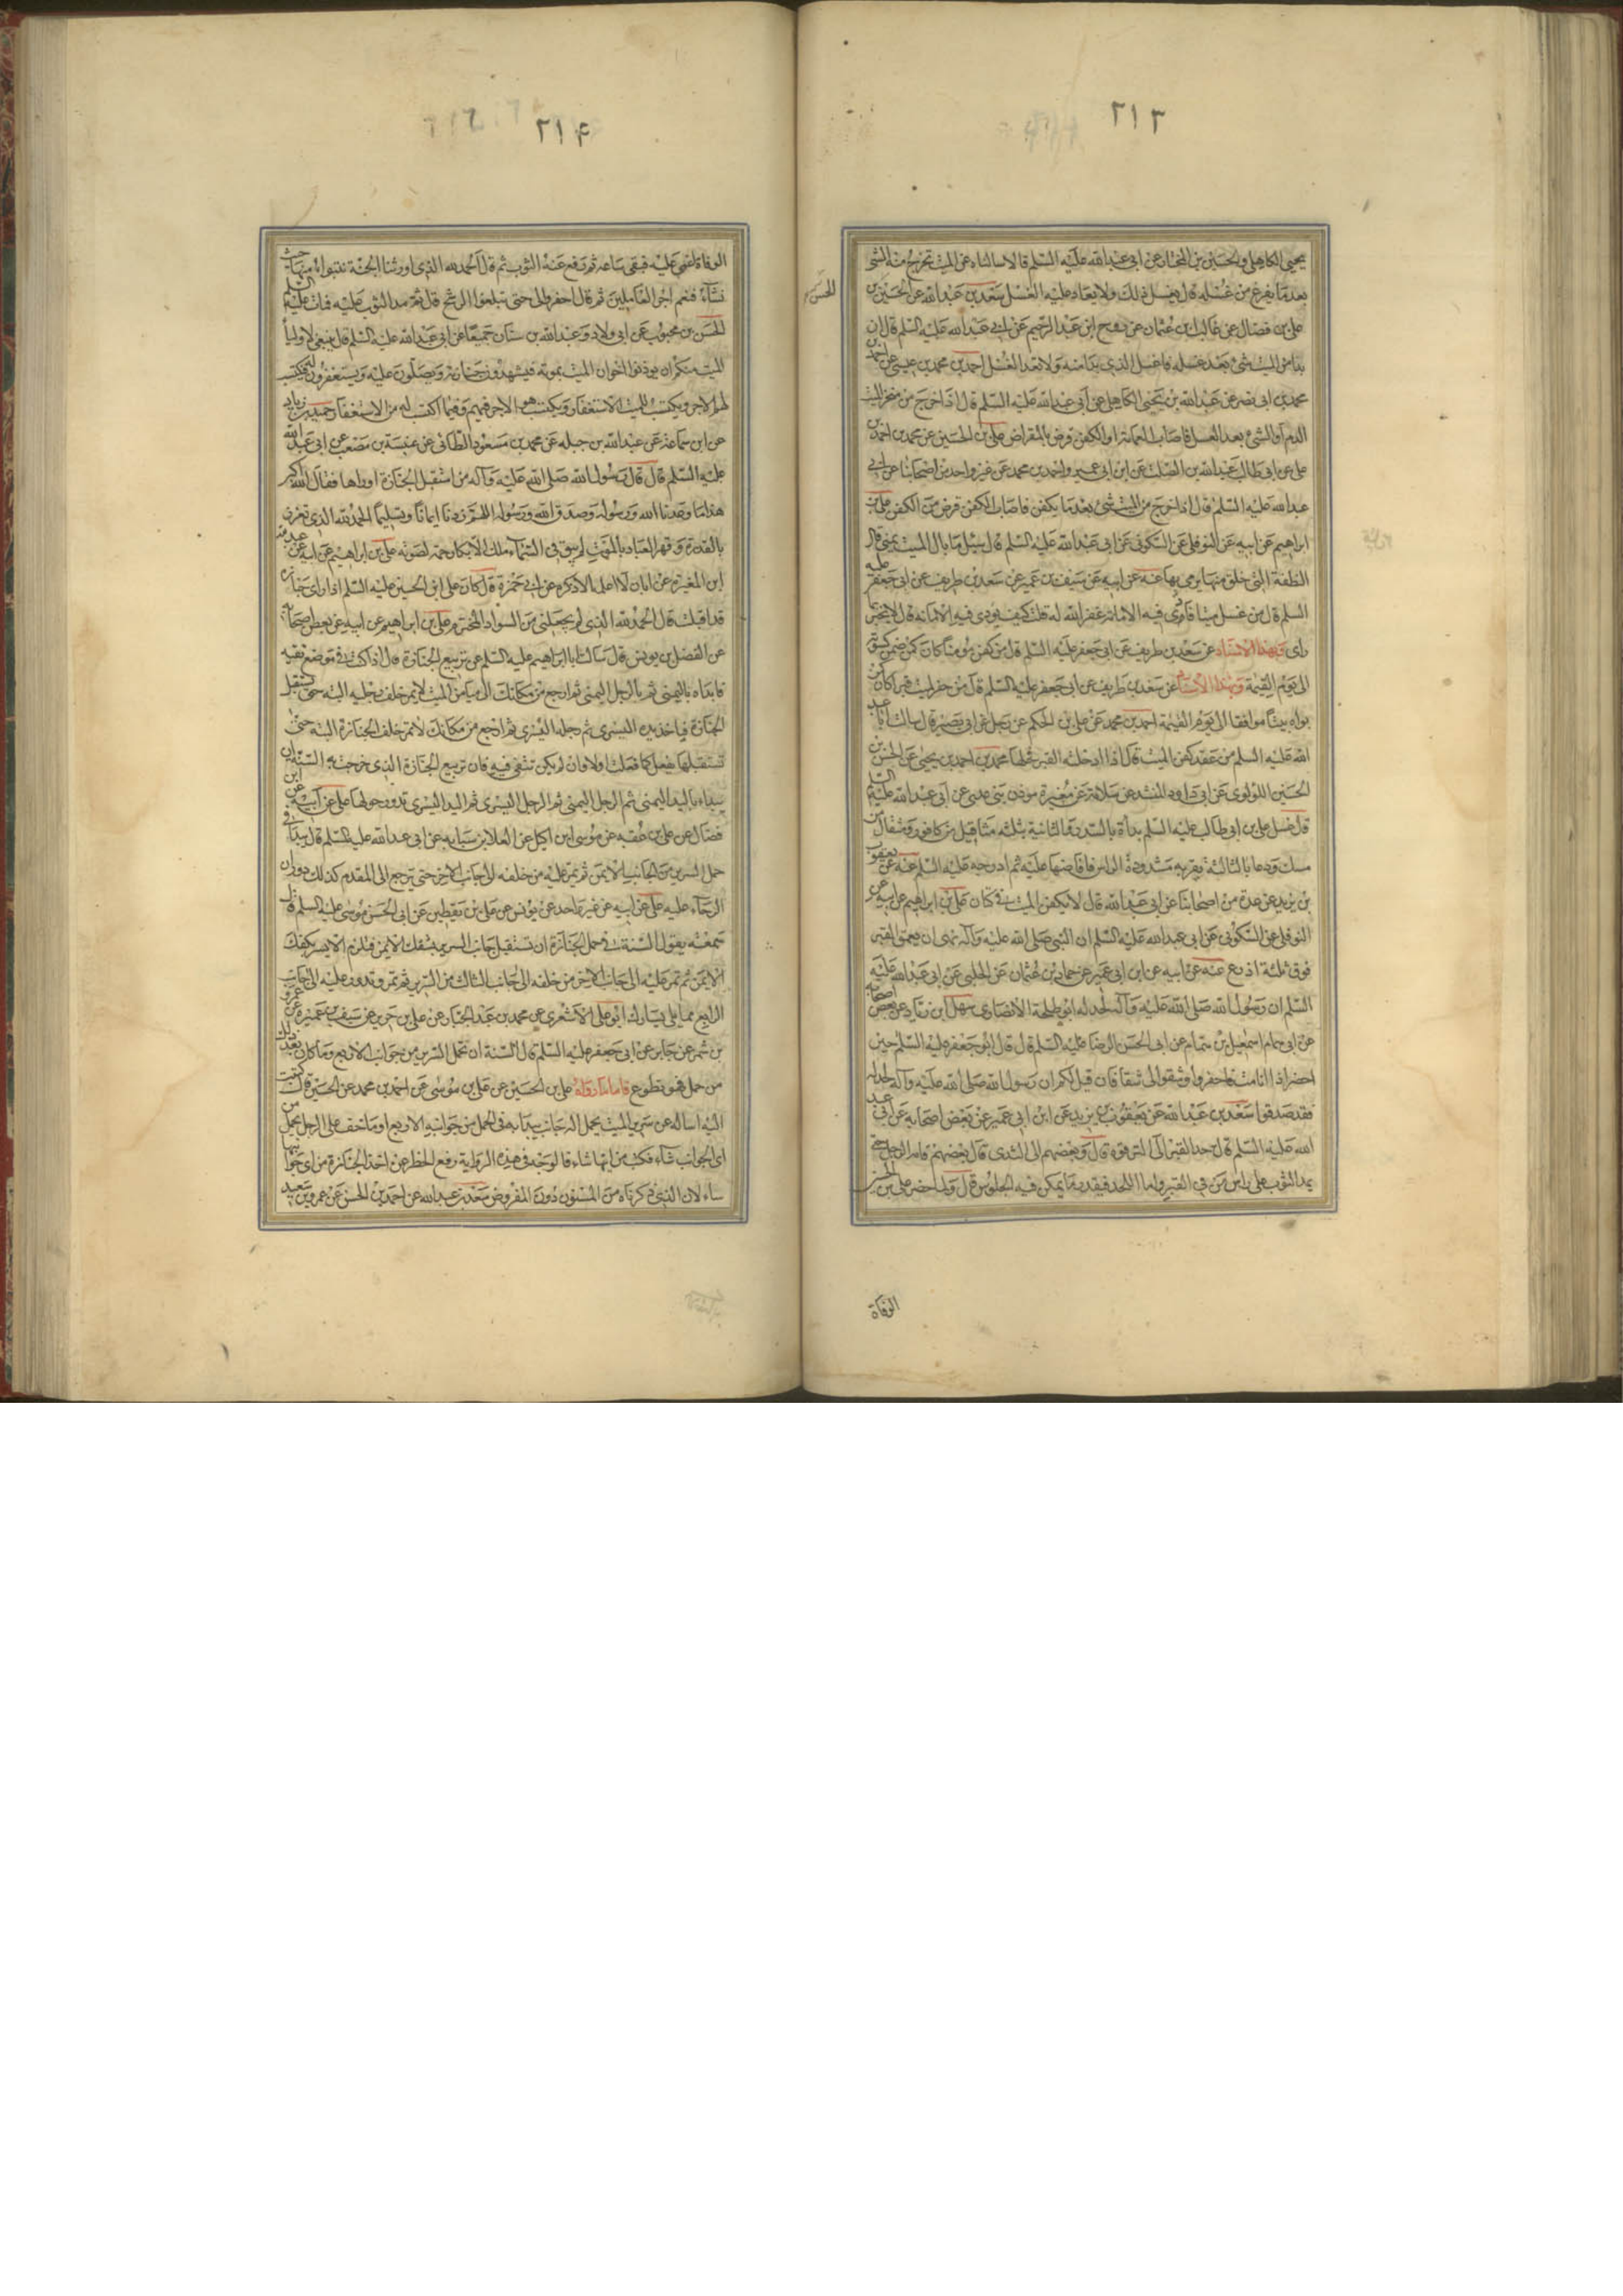 ٢١٣
يحيى الكاهلي والحسين بن المختار عن ابي عبد الله عليه السلم قالا سالناه عن الميت يخرج منه الشئ
بعد ما يفرغ من غسله قال يغسل ذلك ولا يعاد عليه الغسل سعد بن عبد الله عن الحسين بن
الحسن
علي بن فضال عن غالب بن عثمان عن روح ابن عبد الرحيم عن ابي عبد الله عليه السلم قال ان
بدا من الميت شئ بعد غسله فاغسل الذي بدا منه ولا تعد الغسل احمد بن محمد بن عيسى عن احمد بن
محمد بن ابي نصر عن عبد الله بن يحيى الكاهلي عن ابي عبد الله عليه السلم قال اذا خرج من منخر الميت
الدم او الشئ بعد الغسل فاصاب العمامة او الكفن قرض بالمقراض علي بن الحسين عن محمد بن احمد بن
علي عن ابي طالب عبد الله بن الصلت عن ابن ابي عمير واحمد بن محمد عن غير واحد من اصحابنا عن ابي
عبد الله عليه السلم قال اذا خرج من الميت شئ بعد ما يكفن فاصاب الكفن قرض من الكفن علي بن
ابراهيم عن ابيه عن النوفلي عن السكوني عن ابي عبد الله عليه السلم قال سئل ما بال الميت يمني قال
النطفة التي خلق منها يرمي بها عنه عن ابيه عن سيف بن عمير عن سعد بن طريف عن ابي جعفر عليه
السلم قال من غسل ميتا فادى فيه الامانة غفر الله له قلت كيف يؤدي فيه الامانة قال لا يخبر بما
راى وبهذا الاسناد عن سعد بن طريف عن ابي جعفر عليه السلم قال من كفن مؤمنا كان كمن ضمن كسوته
الى يوم القيمة وبهذا الاسناد عن سعد بن طريف عن ابي جعفر عليه السلم قال من حفر لميت قبرا كان كمن
بواه بيتا موافقا الى يوم القيمة احمد بن محمد عن علي بن الحكم عن رجل عن ابي بصير قال سالت ابا عبد
الله عليه السلم من عقد كفن الميت قال اذا ادخلته القبر فحلها محمد بن احمد بن يحيى عن الحسن بن
الحسين اللؤلؤي عن ابي داود المنشد عن سلامة عن مغيرة موذن بني عدي عن ابي عبد الله عليه السلم
قال غسل علي بن ابي طالب عليه السلم بداه بالسدر والثانية بثلثه مثاقيل من كافور ومثقال من
مسك ودعا بالثالثة بقربه مشدودة الراس فافاضها عليه ثم ادرجه عليه السلم عنه عن يعقوب
بن يزيد عن عدة من اصحابنا عن ابي عبد الله قال لا يكفن الميت في كتان علي بن ابراهيم عن ابيه عن
النوفلي عن السكوني عن ابي عبد الله عليه السلم ان النبي صلى الله عليه وآله نهى ان يعمق القبر
فوق ثلثة اذرع عنه عن ابيه عن ابن ابي عمير عن حماد بن عثمان عن الحلبي عن ابي عبد الله عليه
السلم ان رسول الله صلى الله عليه وآله لحد له ابو طلحة الانصاري سهل ابن زياد عن بعض اصحابه
عن ابي همام اسمعيل بن همام عن ابي الحسن الرضا عليه السلم قال قال ابو جعفر عليه السلم حين
احضر اذا انا مت فاحفروا وشقوا لي شقا فان قيل لكم ان رسول الله صلى الله عليه وآله لحد له
فقد صدقوا سعد بن عبد الله عن يعقوب بن يزيد عن ابن ابي عمير عن بعض اصحابه عن ابي عبد
الله عليه السلم قال حد القبر الى الترقوه قال وبعضهم الى الثدي قال بعضهم قامه الرجل حتى
يمد الثوب على راس من في القبر واما اللحد فبقدر ما يمكن فيه الجلوس قال ولما حضر علي بن الحسين
الوفاة
٢١٤
الوفاة اغمي عليه فبقى ساعه ثم رفع عنه الثوب ثم قال الحمد لله الذي اورثنا الجنة نتبوا منها حيث
نشاء فنعم اجر العاملين ثم قال احفروا لي حتى تبلغوا الرشح قال ثم مد الثوب عليه فمات عليه السلم
الحسن بن محبوب عن ابي ولاد وعبد الله بن سنان جميعا عن ابي عبد الله عليه السلم قال ينبغي لاوليا
الميت منكم ان يوذنوا اخوان الميت بموته فيشهدون جنازته ويصلون عليه ويستغفرون له فيكتب
لهم الاجر ويكتب للميت الاستغفار ويكتب هو الاجر فيهم وفيما اكتب له من الاستغفار حميد بن زياد
عن ابن سماعة عن عبد الله بن جبله عن محمد بن مسعود الطائي عن عنبسة بن مصعب عن ابي عبد الله
عليه السلم قال قال رسول الله صلى الله عليه وآله من استقبل الجنازة او راها فقال الله اكبر
هذا ما وعدنا الله ورسوله وصدق الله ورسوله اللهم زدنا ايمانا وتسليما الحمد لله الذي تعزز
بالقدرة وقهر العباد بالموت لم يبق في السماء ملك الا بكا رحمة لصوته علي بن ابراهيم عن ابيه عن عبد الله
ابن المغيرة عن ابان لا اعلمه الا ذكره عن ابي حمزة قال كان علي ابن الحسين عليه السلم اذا راى جنازه
قد اقبلت قال الحمد لله الذي لم يجعلني من السواد المخترم علي بن ابراهيم عن ابيه عن بعض اصحابه
عن الفضل بن يونس قال سالت ابا ابراهيم عليه السلم عن تربيع الجنازة قال اذا كنت في موضع تقيه
فابداه باليمنى ثم بالرجل اليمنى ثم ارجع من مكانك الى ميامن الميت لا تمر خلف رجليه البته حتى تستقبل
الجنازة فياخذ يده اليسرى ثم رجله اليسرى ثم ارجع من مكانك لا تمر خلف الجنازة البته حتى
تستقبلها تفعل كما فعلت اولا فان لم يكن تتقي فيه فان تربيع الجنازة الذي خرجت به السنة ان
يبداء باليد اليمنى ثم الرجل اليمنى ثم الرجل اليسرى ثم اليد اليسرى تدور حولها علي عن ابيه عن ابن
فضال عن علي بن عقبه عن موسى ابن اكيل عن العلا بن سيابه عن ابي عبد الله عليه السلم قال يبدا في
حمل السرير من الجانب الايمن ثم يمر عليه من خلفه الى الجانب الاخر حتى يرجع الى المقدم كذلك دوران
الرحاء عليه علي عن ابيه عن غير واحد عن يونس عن علي بن يقطين عن ابي الحسن موسى عليه السلم قال
سمعته يقول السنة في حمل الجنازة ان تستقبل جانب السرير بشقك الايمن فتلزم الايسر بكفك
الايمن ثم تمر عليه الى جانب الاخر من خلفه الى جانب الثالث من السرير ثم تمر وتدور عليه الى الجانب
الرابع مما يلي يسارك ابو علي الاشعري عن محمد بن عبد الجبار عن علي بن حديد عن سيف بن عميرة عن عمرو
بن شمر عن جابر عن ابي جعفر عليه السلم قال السنة ان تحمل السرير من جوانبه الاربع وما كان بعد ذلك
من حمل فهو تطوع فاما ما رواه علي بن الحسين عن علي بن موسى عن احمد بن محمد عن الحسين قال كتبت
اليه اساله عن سرير الميت يحمل اله جانب يبدا به في الحمل من جوانبه الاربع او ما خف على الرجل يحمل من
اي الجوانب شاء فكتب من ايها شاء فالوجه في هذه الرواية رفع الحظر عن اخذ الجنازة من اي جوانبها
شاء لان الذي ذكرناه من المسنون دون المفروض سعد بن عبد الله عن احمد بن الحسن عن عمرو بن سعيد